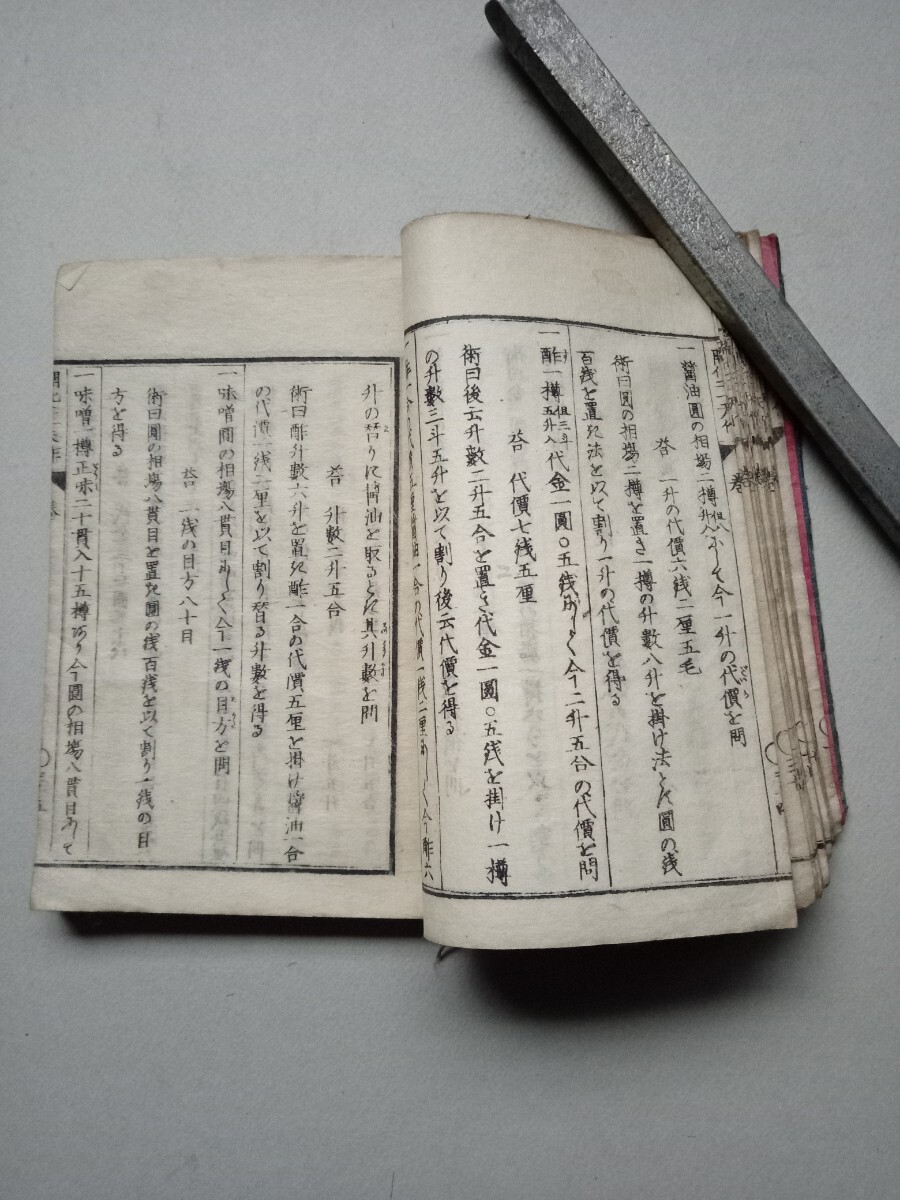 一醤油圓の相場二樽但八升入にして今一升の代價を問
荅 一升の代價六銭二厘五毛
術曰圓の相場二樽を置き一樽の升數八升を掛け法とし圓の銭
百銭を置き法を以て割り一升の代價を得る
一酢一樽但三斗五升入代金一圓〇五銭にして今二升五合の代價を問
荅 代價七銭五厘
術曰後云升數二升五合を置き代金一圓〇五銭を掛け一樽
の升數三斗五升を以て割り後云代價を得る
一合の代價一銭二厘にして今酢六
升の替りに醤油を取るとき其升數を問
荅 升數二升五合
術曰酢升數六升を置き酢一合の代價五厘を掛け醤油一合
の代價一銭二厘を以て割り替る升數を得る
一味噌圓の相場八貫目にして今一銭の目方を問
荅 一銭の目方八十目
術曰圓の相場八貫目を置き圓の銭百銭を以て割り一銭の目
方を得る
一味噌一樽正味二十貫入十五樽あり今圓の相場八貫目にて